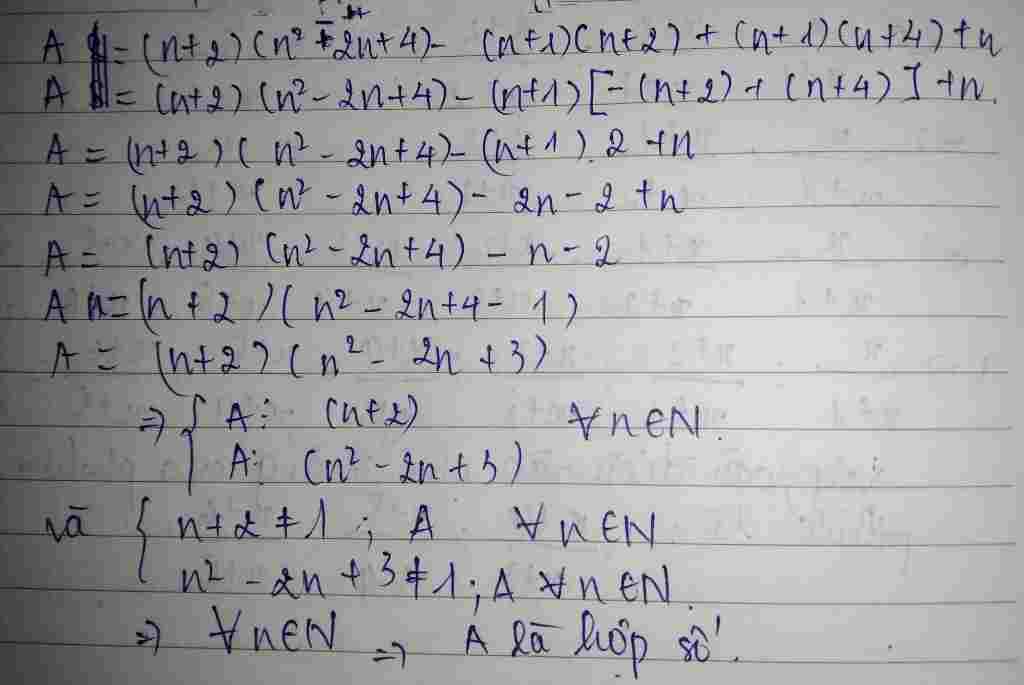 A = (n+2)(n² - 2n+4) - (n+1)(n+2) + (n+1)(n+4) + n
A = (n+2)(n² - 2n+4) - (n+1)[-(n+2) + (n+4)] + n.
A = (n+2)(n² - 2n+4) - (n+1).2 + n
A = (n+2)(n² - 2n+4) - 2n - 2 + n
A = (n+2)(n² - 2n+4) - n - 2
A n = (n+2)(n² - 2n+4 - 1)
A = (n+2)(n² - 2n + 3)
⇒ { A ⋮ (n+2) ∀n∈N.
A ⋮ (n² - 2n + 3)
và { n+2 ≠ 1 ; A ∀n∈N
n² - 2n + 3 ≠ 1 ; A ∀n∈N.
⇒ ∀n∈N ⇒ A là hợp số.